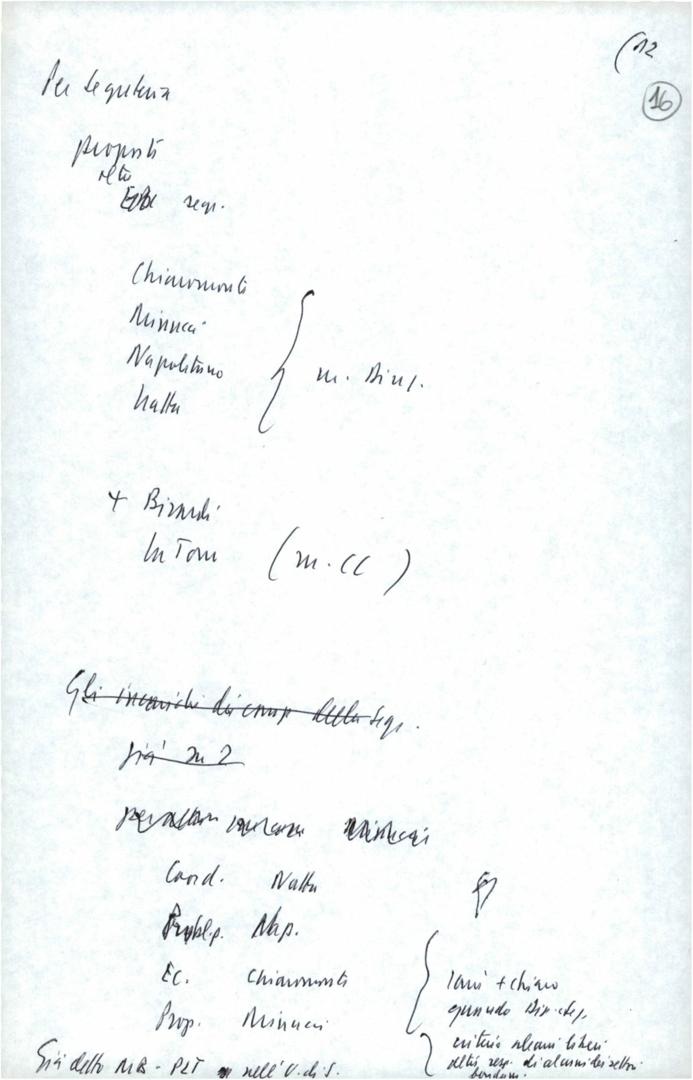 (12
16
Per Segreteria
proposti
oltre
segr.
Chiaromonti
Minucci
Napolitano
Natta
m. Dirz.
+ Birardi
La Torre (m. CC)
Gli incarichi dei comp. della Segr.
già in 2
Minucci
Coord. Natta
Probl. p. Nap.
Ec. Chiaromonti
Prop. Minucci
sarà + chiaro
quando Dir.
criterio alcuni liberi
altri resp. di alcuni dei settori
Già detto MB - PLT nell' U. di S.